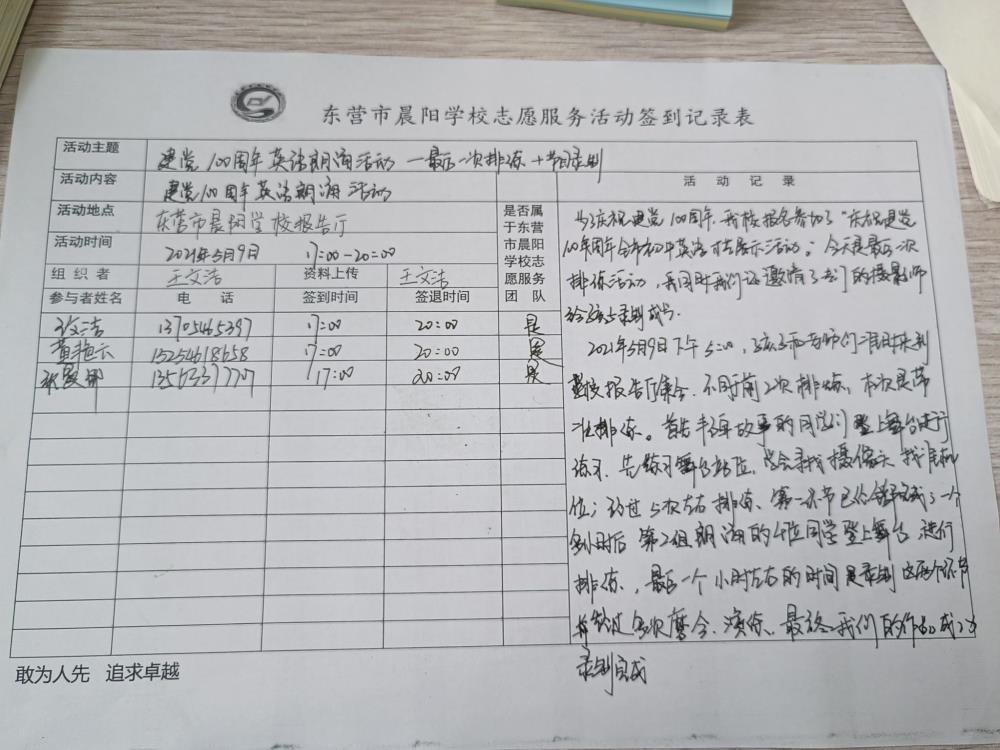 东营市晨阳学校志愿服务活动签到记录表
活动主题 建党100周年英语朗诵活动—最后一次排练+节目录制
活动内容 建党100周年英语朗诵活动
活动地点 东营市晨阳学校报告厅
活动时间 2021年5月9日 17:00-20:00
组织者 王文浩 资料上传 王文浩
是否属于东营市晨阳学校志愿服务团队
参与者姓名 电话 签到时间 签退时间
13705465397 17:00 20:00 是
黄艳云 15254618658 17:00 20:00 是
17:00 20:00 是
活动记录
为了庆祝建党100周年,我校报名参加了“庆祝建党
100年周年全市初中英语 展示活动”。今天是最后一次
排练活动,我 同时我们还邀请了专门的摄影师
给孩子录制
2021年5月9日下午5:00,孩子和老师们准时来到
学校报告厅集合,不同于前2次排练,本次是
排练。首先 故事的同学们登上舞台进行
练习,先练习舞台站位,学会寻找摄像头,找准机
位;经过5次左右排练,第一环节已经 一个
小时后 第2组朗诵的4位同学登上舞台,进行
排练,最后一个小时左右的时间是录制 这两个环节
多次磨合、演练,最终我们的作品成功
录制完成
敢为人先 追求卓越